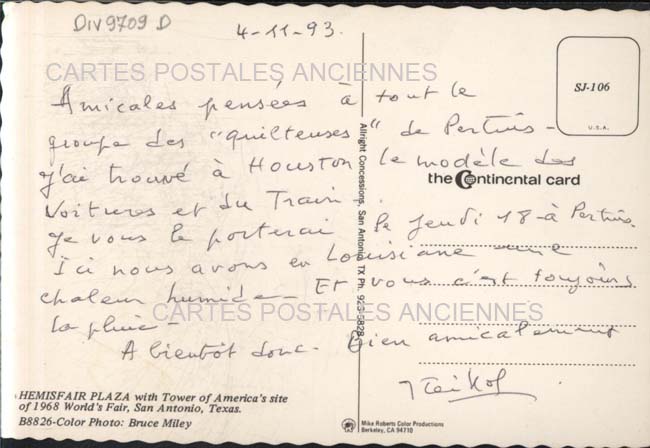 DIV9709 D
4-11-93.
CARTES POSTALES ANCIENNES
Amicales pensées à tout le
groupe des "quilteuses" de Pertuis-
J'ai trouvé à Houston le modèle des
Voitures et du Train-
Je vous le porterai le jeudi 18-à Pertuis.
Ici nous avons en Louisiane une
chaleur humide- Et vous c'est toujours
la pluie-
A bientôt donc. Bien amicalement
CARTES POSTALES ANCIENNES
SJ-106
U.S.A.
the Continental card
Allright Concessions, San Antonio, TX Ph. 923-5828
HEMISFAIR PLAZA with Tower of America's site
of 1968 World's Fair, San Antonio, Texas.
B8826-Color Photo: Bruce Miley
Mike Roberts Color Productions
Berkeley, CA 94710